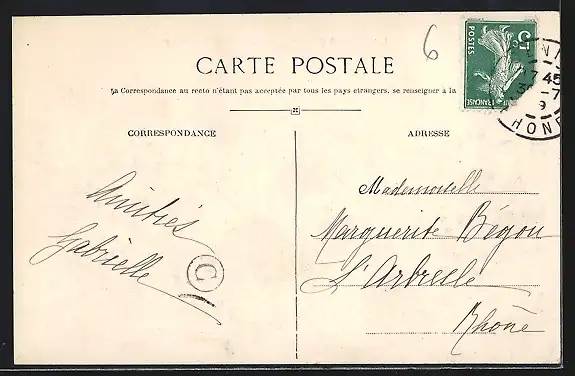 6
CARTE POSTALE
La Correspondance au recto n'étant pas acceptée par tous les pays etrangers, se renseigner à la
CORRESPONDANCE
ADRESSE
5c
POSTES
45
-7
9
RHON
Amitiés
Gabrielle
C
Mademoiselle
Marguerite Bégon
L'Arbresle
Rhône